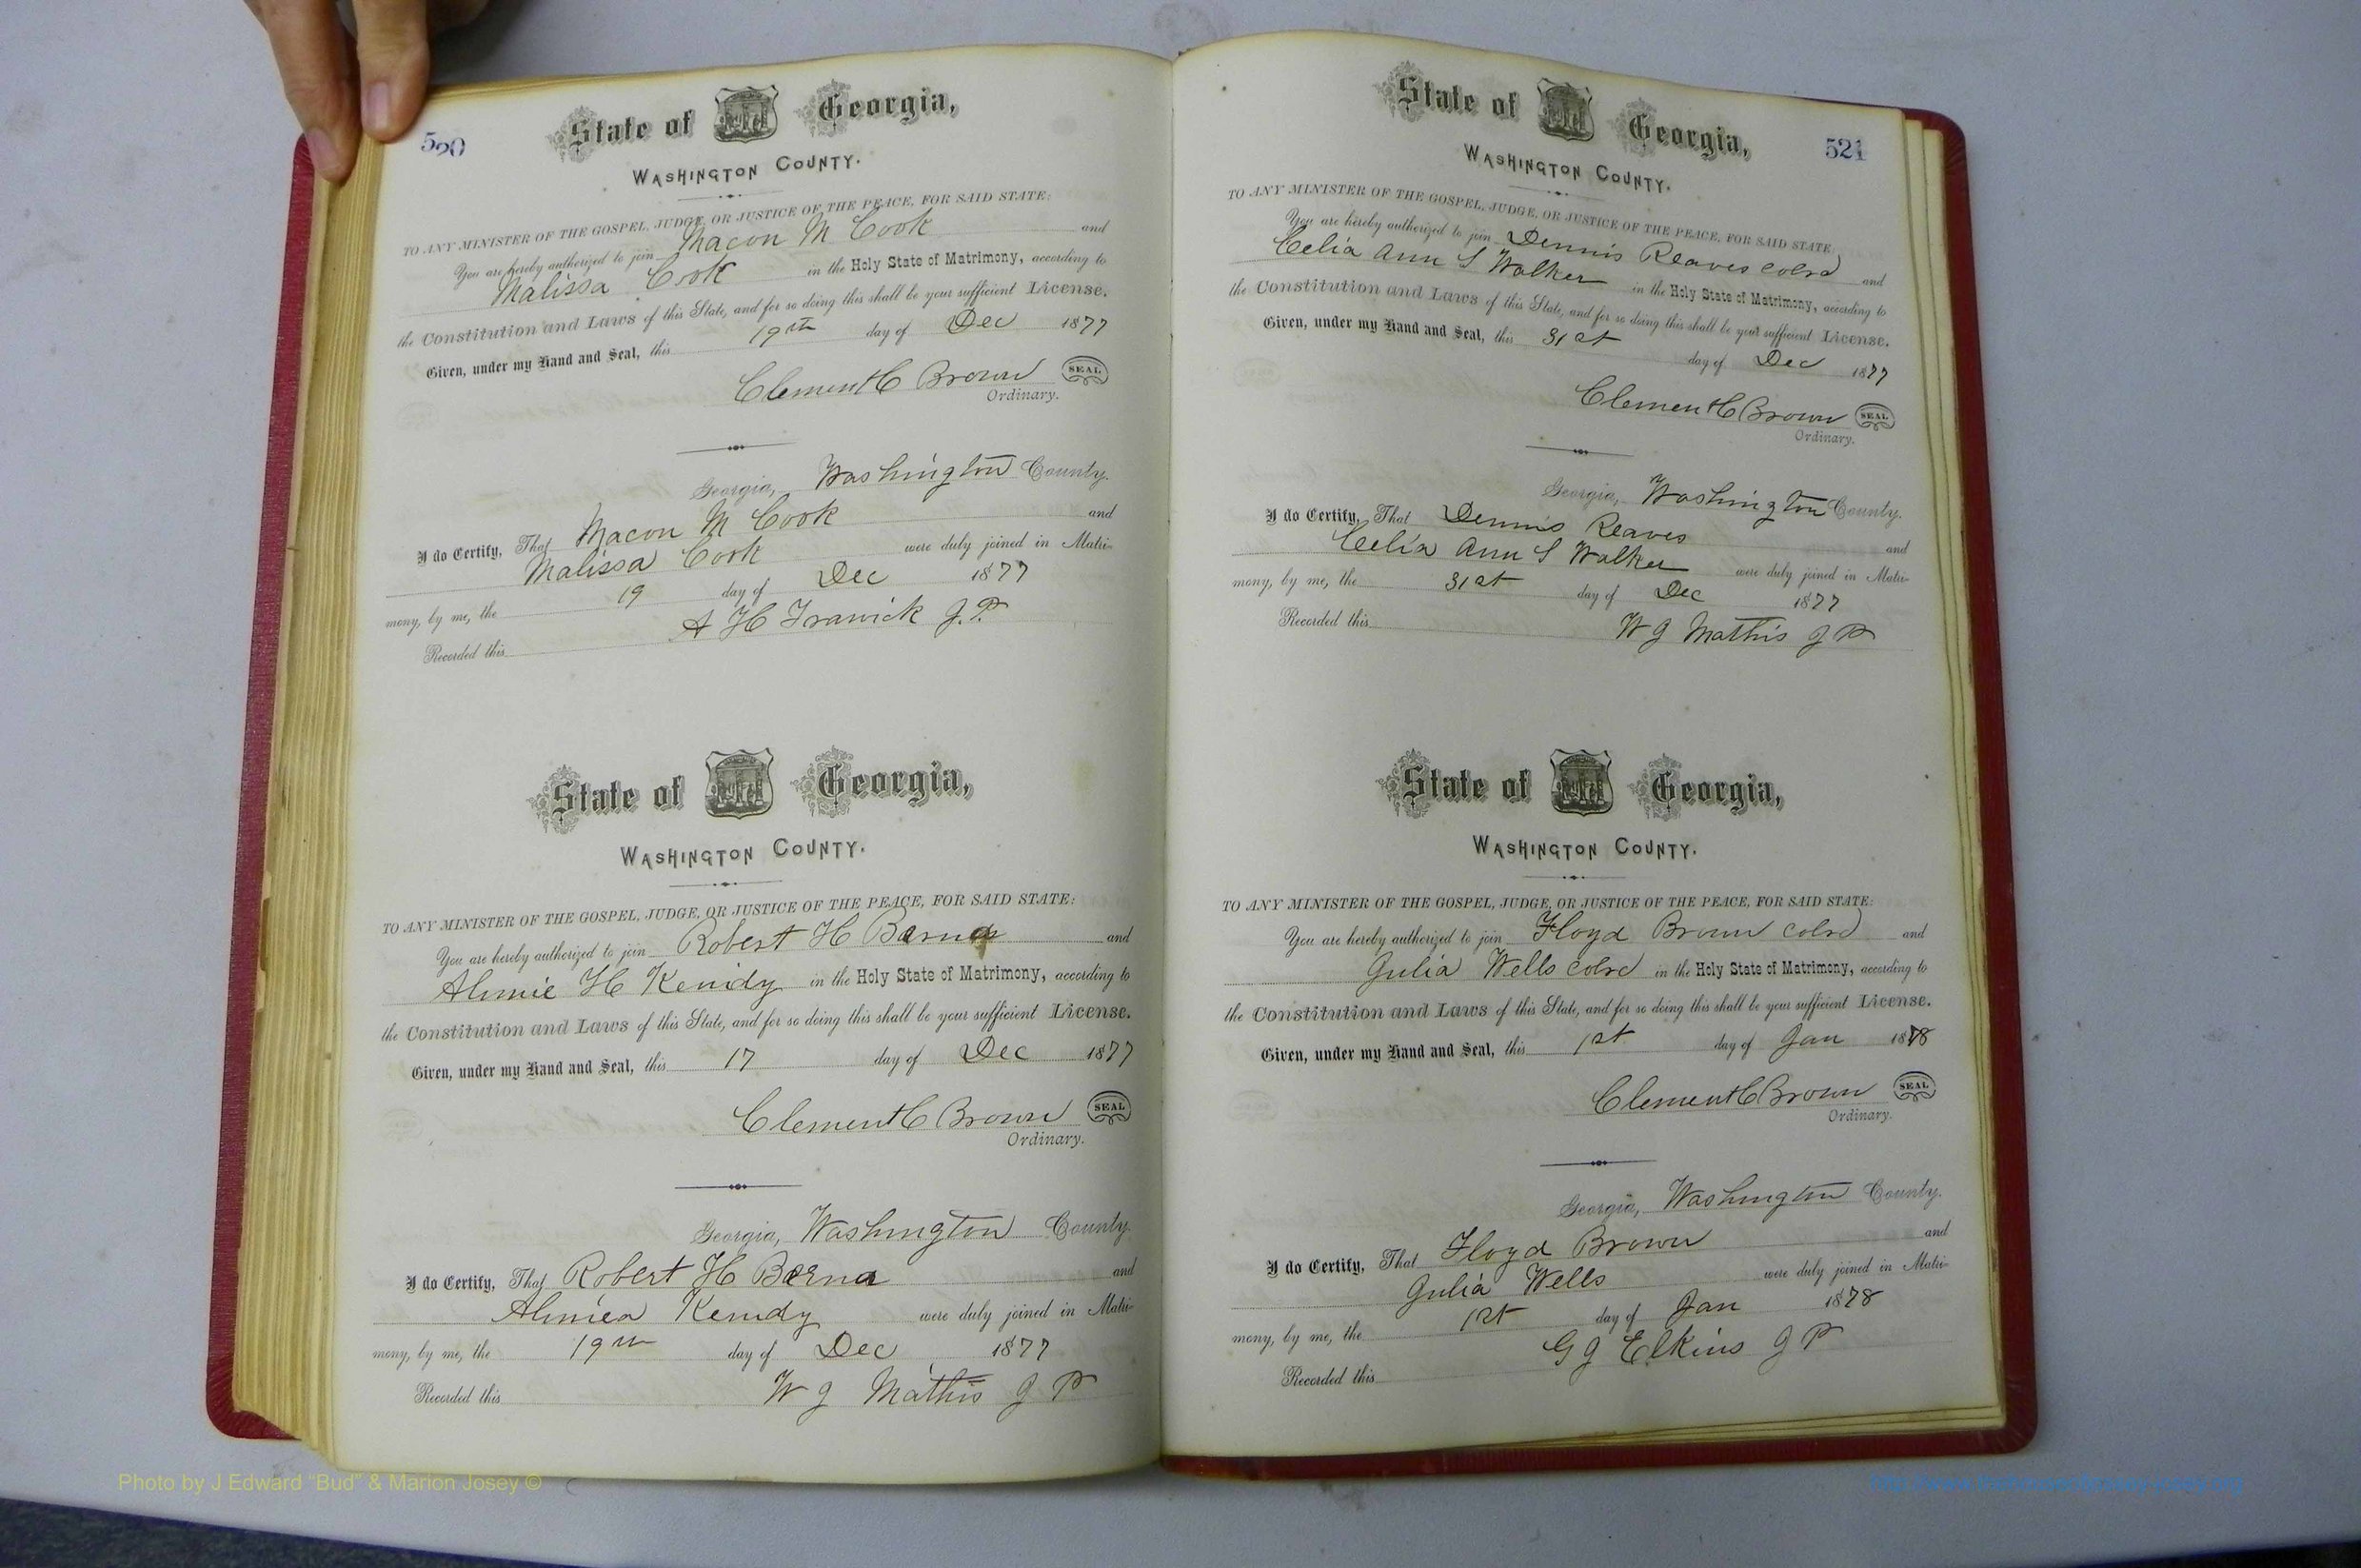 520
State of Georgia,
WASHINGTON COUNTY.
TO ANY MINISTER OF THE GOSPEL, JUDGE, OR JUSTICE OF THE PEACE, FOR SAID STATE:
You are hereby authorized to join Macon M Cook and
Malissa Cook in the Holy State of Matrimony, according to
the Constitution and Laws of this State, and for so doing this shall be your sufficient License.
Given, under my Hand and Seal, this 19th day of Dec 1877
Clement C Brown SEAL
Ordinary.
Georgia, Washington County.
I do Certify, That Macon M Cook and
Malissa Cook were duly joined in Matri-
mony, by me, the 19 day of Dec 1877
A H Trawick J.P.
Recorded this
State of Georgia,
WASHINGTON COUNTY.
TO ANY MINISTER OF THE GOSPEL, JUDGE, OR JUSTICE OF THE PEACE, FOR SAID STATE:
You are hereby authorized to join Robert H and
H in the Holy State of Matrimony, according to
the Constitution and Laws of this State, and for so doing this shall be your sufficient License.
Given, under my Hand and Seal, this 17 day of Dec 1877
Clement C Brown SEAL
Ordinary.
Georgia, Washington County.
I do Certify, That Robert H and
were duly joined in Matri-
mony, by me, the 19th day of Dec 1877
Recorded this W J Mathis J P
521
State of Georgia,
WASHINGTON COUNTY.
TO ANY MINISTER OF THE GOSPEL, JUDGE, OR JUSTICE OF THE PEACE, FOR SAID STATE:
You are hereby authorized to join Dennis Reaves colrd and
Celia Ann S Walker in the Holy State of Matrimony, according to
the Constitution and Laws of this State, and for so doing this shall be your sufficient License.
Given, under my Hand and Seal, this 31st day of Dec 1877
Clement C Brown SEAL
Ordinary.
Georgia, Washington County.
I do Certify, That Dennis Reaves and
Celia Ann S Walker were duly joined in Matri-
mony, by me, the 31st day of Dec 1877
Recorded this W J Mathis J P
State of Georgia,
WASHINGTON COUNTY.
TO ANY MINISTER OF THE GOSPEL, JUDGE, OR JUSTICE OF THE PEACE, FOR SAID STATE:
You are hereby authorized to join Floyd Brown colrd and
Julia Wells colrd in the Holy State of Matrimony, according to
the Constitution and Laws of this State, and for so doing this shall be your sufficient License.
Given, under my Hand and Seal, this 1st day of Jan 1878
Clement C Brown SEAL
Ordinary.
Georgia, Washington County.
I do Certify, That Floyd Brown and
Julia Wells were duly joined in Matri-
mony, by me, the 1st day of Jan 1878
G J Elkins J P
Recorded this
Photo by J Edward "Bud" & Marion Josey ©